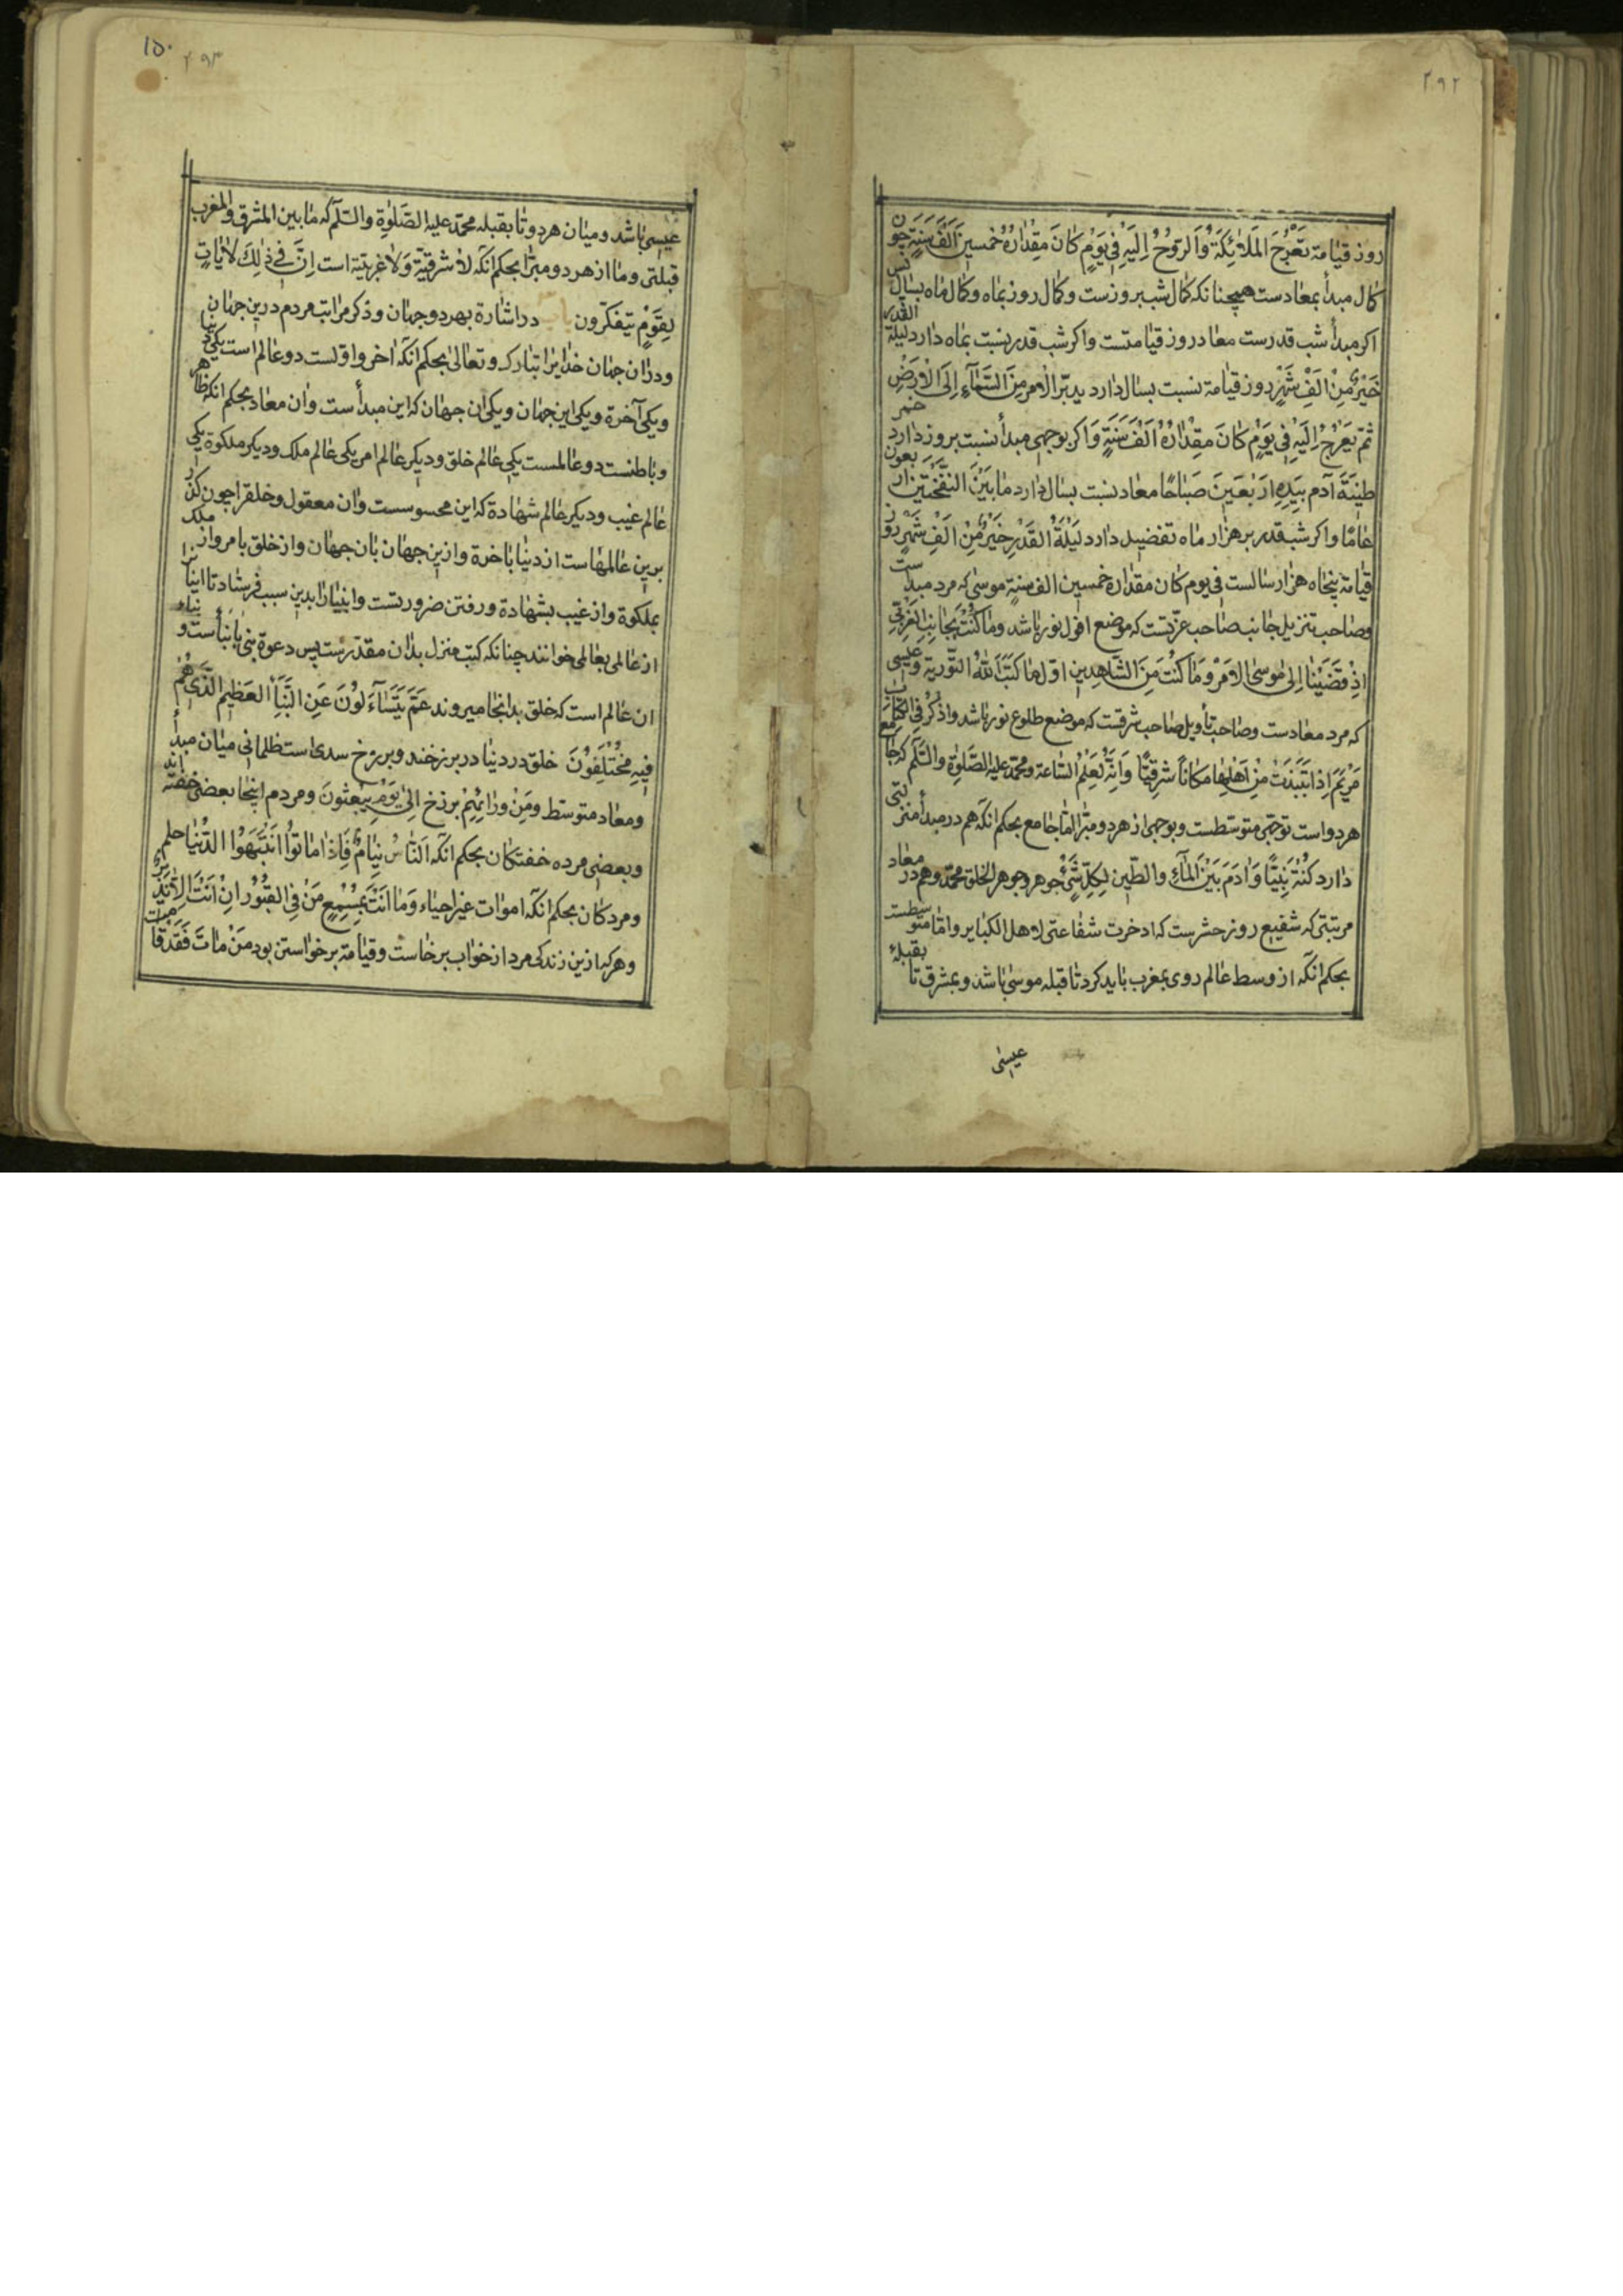 ۲۹۲
روز قیامة تعرج الملائکة والروح الیه فی یوم کان مقداره خمسین الف سنة چون
کمال مبدأ بمعادست همچنانکه کمال شب بروزست وکمال روز بماه وکمال ماه بسال پس
اکر مبدأ شب قدرست معاد روز قیامتست واکر شب قدر نسبت بماه دارد لیلة القدر
خیر من الف شهر روز قیامة نسبت بسال دارد یدبر الامر من السماء الی الارض
ثم یعرج الیه فی یوم کان مقداره الف سنة واکر بوجهی مبدأ نسبت بروز دارد خمر
طینة آدم بیده اربعین صباحا معاد نسبت بسال دارد ما بین النفختین اربعون
عاما واکر شب قدر بر هزار ماه تفضیل دارد لیلة القدر خیر من الف شهر روز
قیامة پنجاه هزار سالست فی یوم کان مقداره خمسین الف سنة موسی که مرد مبدأست
وصاحب تنزیل جانب صاحب غربتست که موضع افول نور باشد وما کنت بجانب الغربی
اذ قضینا الی موسی الامر وما کنت من الشاهدین اول ما کتب الله التوریة وعیسی
که مرد معادست وصاحب تأویل صاحب شرقست که موضع طلوع نور باشد واذکر فی الکتاب
مریم اذ انتبذت من اهلها مکانا شرقیا وانه لعلم الساعة ومحمد علیه الصلوة والسلم که جامع
هر دواست بوجهی متوسطست وبوجهی از هر دو مبرا اما جامع بحکم انکه هم در مبدأ منزلتی
دارد کنت نبیا وادم بین الماء والطین لکل شیء جوهر وجوهر الخلق محمد وهم در معاد
مرتبتی که شفیع روز حشرست که ادخرت شفاعتی لاهل الکبایر واما متوسطست
بحکم انکه از وسط عالم روی بمغرب باید کرد تا قبله موسی باشد وبمشرق تا بقبلهٔ
عیسی
۱۵۰
۲۹۳
عیسی باشد ومیان هر دو تا بقبله محمد علیه الصلوة والسلم که ما بین المشرق والمغرب
قبلتی وما از هر دو مبرا بحکم انکه لا شرقیة ولا غربیة است ان فی ذلک لایات
لقوم یتفکرون باب در اشارة بهر دو جهان وذکر مراتب مردم درین جهان
ودران جهان خدایرا تبارک وتعالی بحکم انکه اخر واولست دو عالم است یکی دنیا
ویکی آخرة ویکی این جهان ویکی ان جهان که این مبدأ ست وان معاد بحکم انکه ظاهر
وباطنست دو عالمست یکی عالم خلق ودیکر عالم امر یکی عالم ملک ودیکر ملکوة یکی
عالم غیب ودیکر عالم شهادة که این محسوسست وان معقول وخلقرا چون کذر
برین عالمهاست از دنیا باخرة وازین جهان بان جهان واز خلق بامر واز ملک
بملکوة واز غیب بشهادة ورفتن ضرورتست وانبیارا بدین سبب فرستاد تا اینانرا
از عالمی بعالمی خوانند چنانکه کتب منزل بدان مقدرست پس دعوة نبی بانبأست ونباء
ان عالم است که خلق بدانجا میروند عم یتساءلون عن النبأ العظیم الذی هم
فیه مختلفون خلق در دنیا در برزخند وبرزخ سدی است ظلمانی میان مبدأ
ومعاد متوسط ومن ورائهم برزخ الی یوم یبعثون ومردم اینجا بعضی خفته اند
وبعضی مرده خفتکان بحکم انکه الناس نیام فاذا ماتوا انتبهوا الدنیا حلم
ومردکان بحکم انکه اموات غیر احیاء وما انت بمسمع من فی القبور ان انت الا نذیر
وهرکه ازین زندکی مرد از خواب برخاست وقیامة برخواستن بود من مات فقد قامت